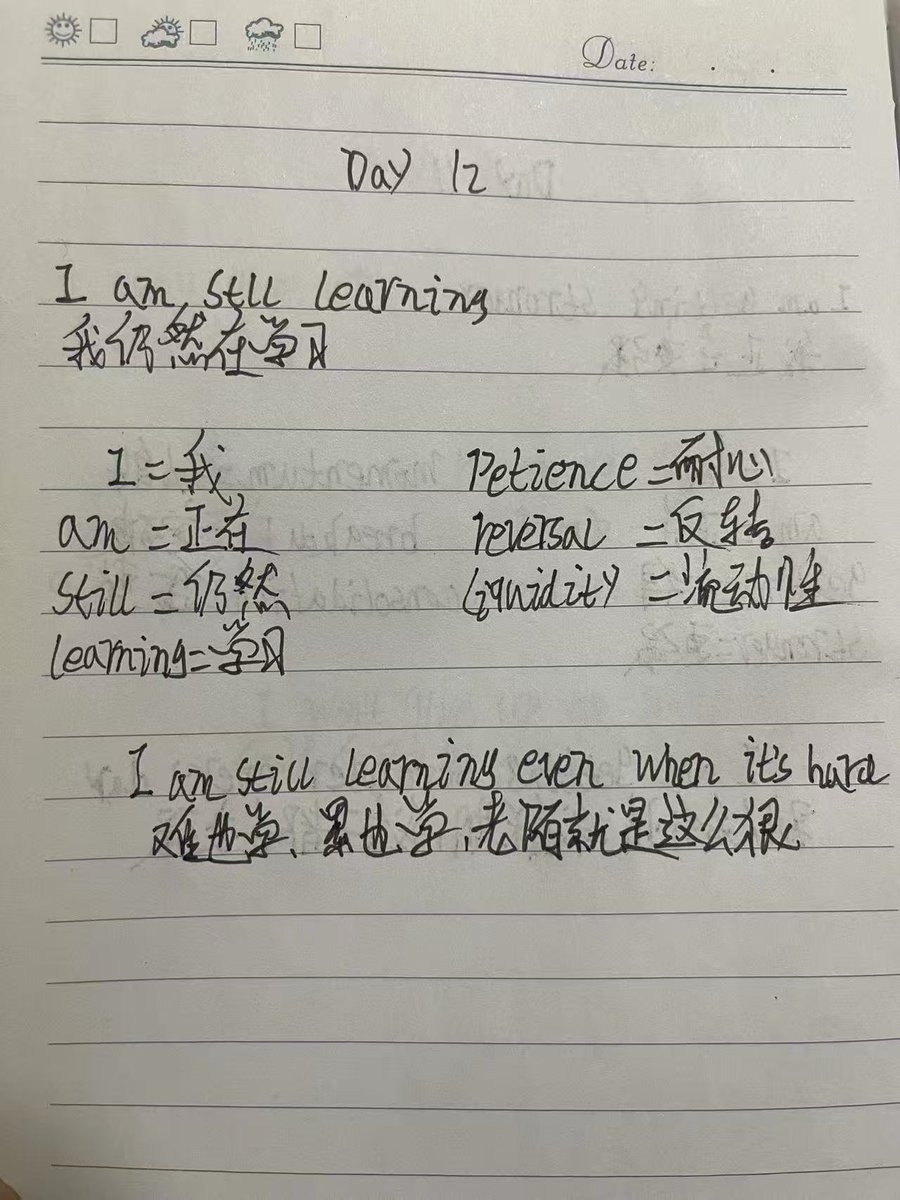 Date: . .
Day 12
I am stll learning
我仍然在学习
I = 我 Petience = 耐心
am = 正在 reversal = 反转
Still = 仍然 Liquidity = 流动性
learning = 学习
I am still learning even when it's hard
难也学、累也学、老陌就是这么狠